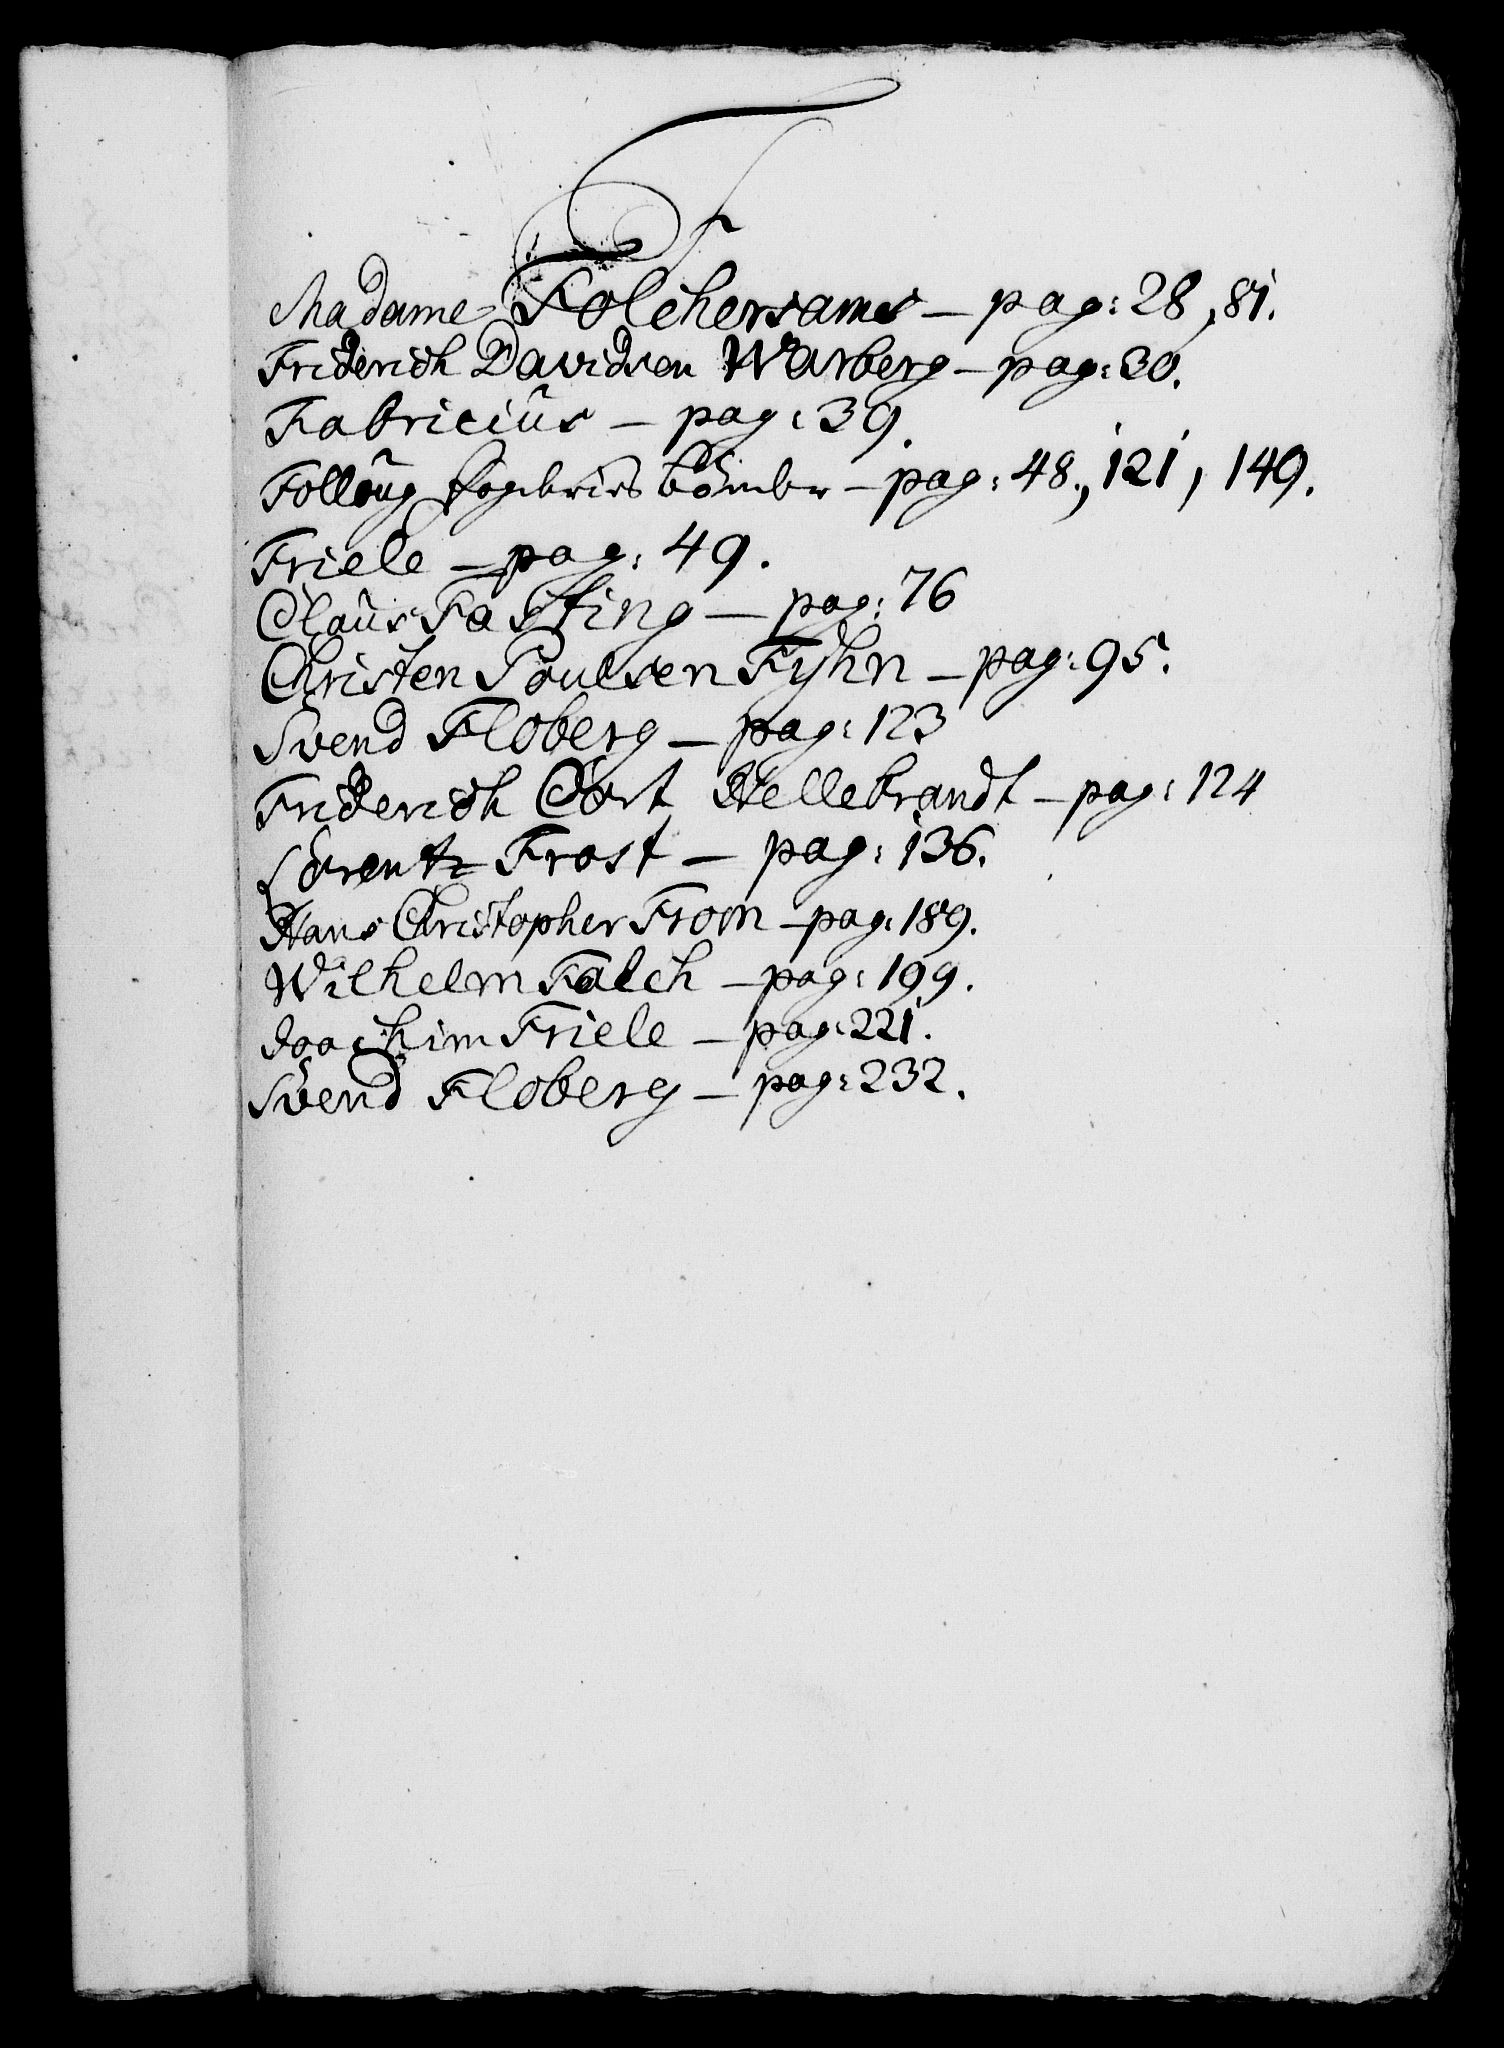 F
Madame Folchersams — pag: 28, 81.
Friderich Davidsen Warberg — pag: 30.
Fabricius — pag: 39.
Folloug Fogderies bönder — pag: 48, 121, 149.
Friele — pag: 49.
Claus Fasting — pag: 76
Christen Poulsen Fyhn — pag: 95.
Svend Floberg — pag: 123
Friderich Cort Hellebrandt — pag: 124
Lorentz Frost — pag: 136.
Hans Christopher From — pag: 189.
Wilhelm Falch — pag: 199.
Joachim Friele — pag: 221.
Svend Floberg — pag: 232.